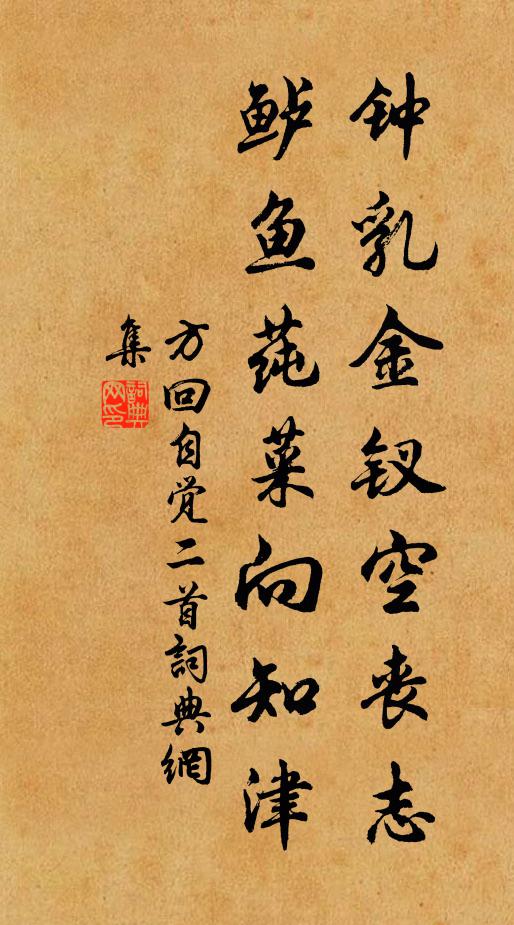 钟乳金钗空丧志
鲈鱼莼菜向知津
方回自觉二首詞典網
集
詞典
网印